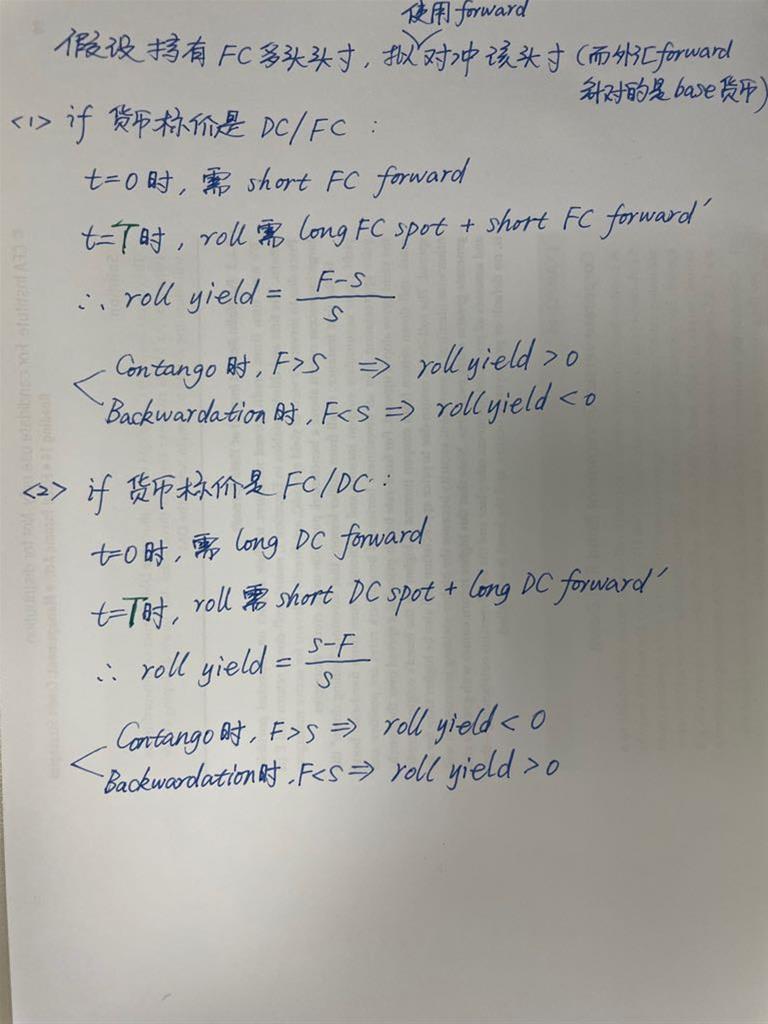 使用forward
假设持有FC多头头寸，拟对冲该头寸（而外汇forward
针对的是base货币）
<1> if 货币标价是 DC/FC：
t=0时，需 short FC forward
t=T时，roll需 long FC spot + short FC forward'
∴ roll yield = (F-S)/S
Contango时，F>S ⇒ roll yield > 0
Backwardation时，F<S ⇒ roll yield < 0
<2> if 货币标价是 FC/DC：
t=0时，需 long DC forward
t=T时，roll需 short DC spot + long DC forward'
∴ roll yield = (S-F)/S
Contango时，F>S ⇒ roll yield < 0
Backwardation时，F<S ⇒ roll yield > 0